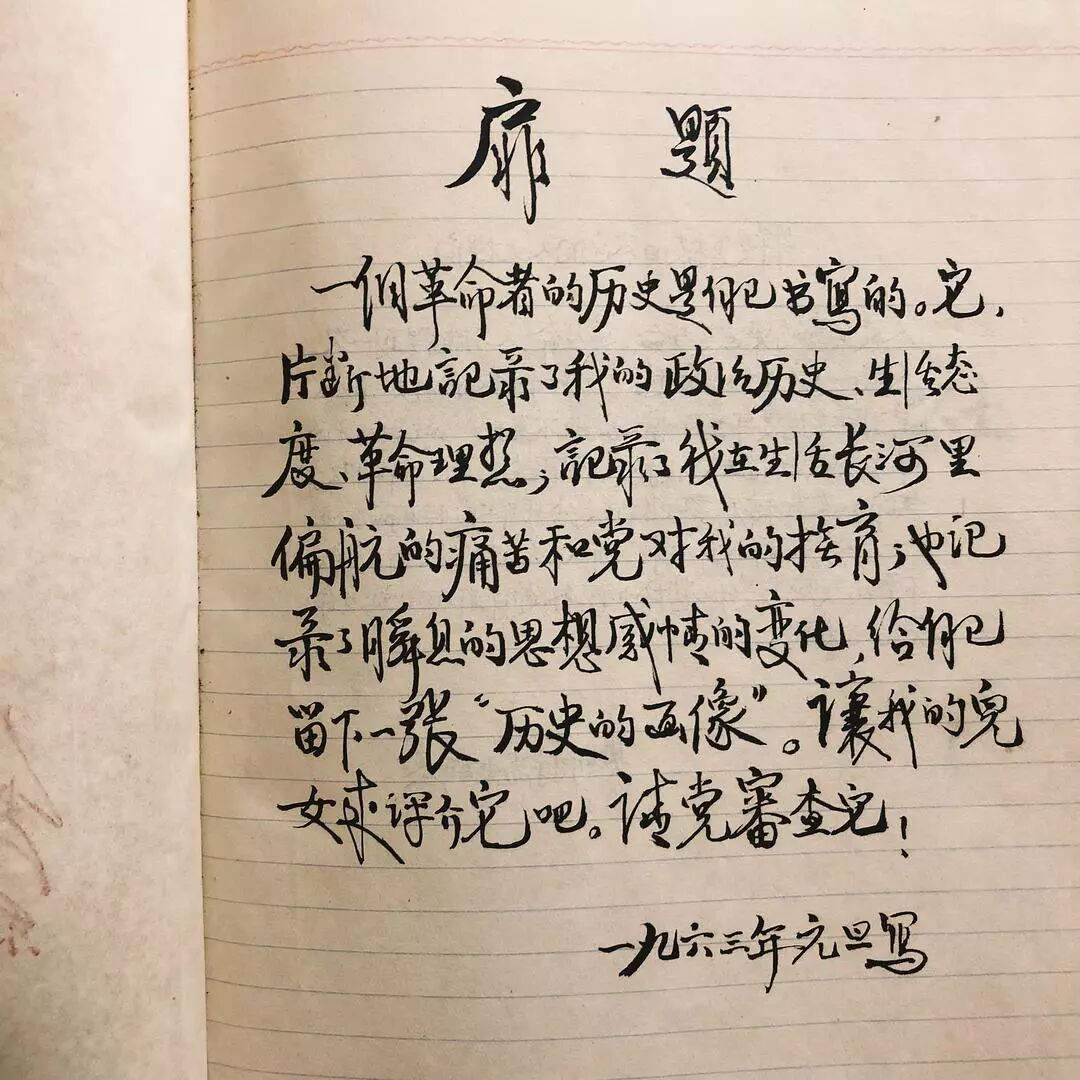 扉 题
一個革命者的历史是自己书寫的。它，
片断地記录了我的政治历史、生活态
度、革命理想；記录了我在生活长河里
偏航的痛苦和党对我的培育；也记
录了瞬息的思想感情的变化，给自己
留下一张“历史的画像”。讓我的兒
女来评介它吧。请党審查它！
一九六三年元旦寫